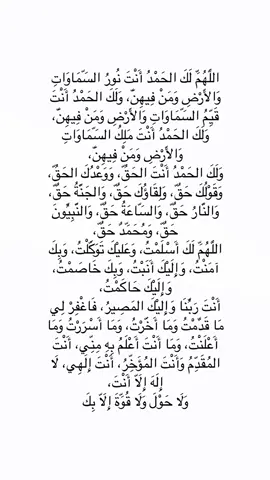 اللَّهُمَّ لَكَ الحَمْدُ أَنْتَ نُورُ السَّمَاوَاتِ
وَالأَرْضِ وَمَنْ فِيهِنَّ، وَلَكَ الحَمْدُ أَنْتَ
قَيِّمُ السَّمَاوَاتِ وَالأَرْضِ وَمَنْ فِيهِنَّ،
وَلَكَ الحَمْدُ أَنْتَ مَلِكُ السَّمَاوَاتِ
وَالأَرْضِ وَمَنْ فِيهِنَّ،
وَلَكَ الحَمْدُ أَنْتَ الحَقُّ، وَوَعْدُكَ الحَقُّ،
وَقَوْلُكَ حَقٌّ، وَلِقَاؤُكَ حَقٌّ، وَالجَنَّةُ حَقٌّ،
وَالنَّارُ حَقٌّ، وَالسَّاعَةُ حَقٌّ، وَالنَّبِيُّونَ
حَقٌّ، وَمُحَمَّدٌ حَقٌّ،
اللَّهُمَّ لَكَ أَسْلَمْتُ، وَعَلَيْكَ تَوَكَّلْتُ، وَبِكَ
آمَنْتُ، وَإِلَيْكَ أَنَبْتُ، وَبِكَ خَاصَمْتُ،
وَإِلَيْكَ حَاكَمْتُ،
أَنْتَ رَبُّنَا وَإِلَيْكَ المَصِيرُ، فَاغْفِرْ لِي
مَا قَدَّمْتُ وَمَا أَخَّرْتُ، وَمَا أَسْرَرْتُ وَمَا
أَعْلَنْتُ، وَمَا أَنْتَ أَعْلَمُ بِهِ مِنِّي، أَنْتَ
المُقَدِّمُ وَأَنْتَ المُؤَخِّرُ، أَنْتَ إِلَهِي، لَا
إِلَهَ إِلَّا أَنْتَ،
وَلَا حَوْلَ وَلَا قُوَّةَ إِلَّا بِكَ